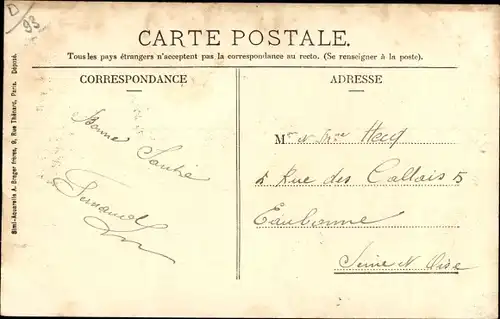 D
93
CARTE POSTALE.
Tous les pays étrangers n'acceptent pas la correspondance au recto. (Se renseigner à la poste).
CORRESPONDANCE
Bonne
Santé
Fernand
ADRESSE
Mr et Mme
5 Rue des Callais 5
Eaubonne
Seine & Oise
Simi-Aquarelle A. Breger frères, 9, Rue Thénard, Paris. Déposé.